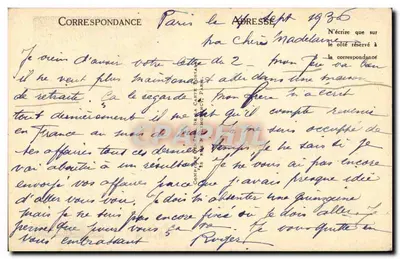 CORRESPONDANCE
ADRESSE
Paris le Sept 1936
N'écrire que sur
le côté réservé à
la correspondance
ma chère Madeleine
Je viens d'avoir votre lettre de 2 mon
il ne veut plus maintenant aller dans une maison
de retraite. Ça le regarde. Mon frère m'a écrit
tout dernièrement il me dit qu'il compte revenir
en France au suis occupée de
ses affaires tous ces derniers temps je ne sais si je
vai aboutir à un résultat. Je ne vous ai pas encore
envoyé vos affaires parce que j'avais presque idée
d'aller vous voir. Je dois m'absenter une quinzaine
mais je ne suis pas encore fixée où je dois aller. Je
pense que pour vous ça va. Je vous quitte en
vous embrassant Roger